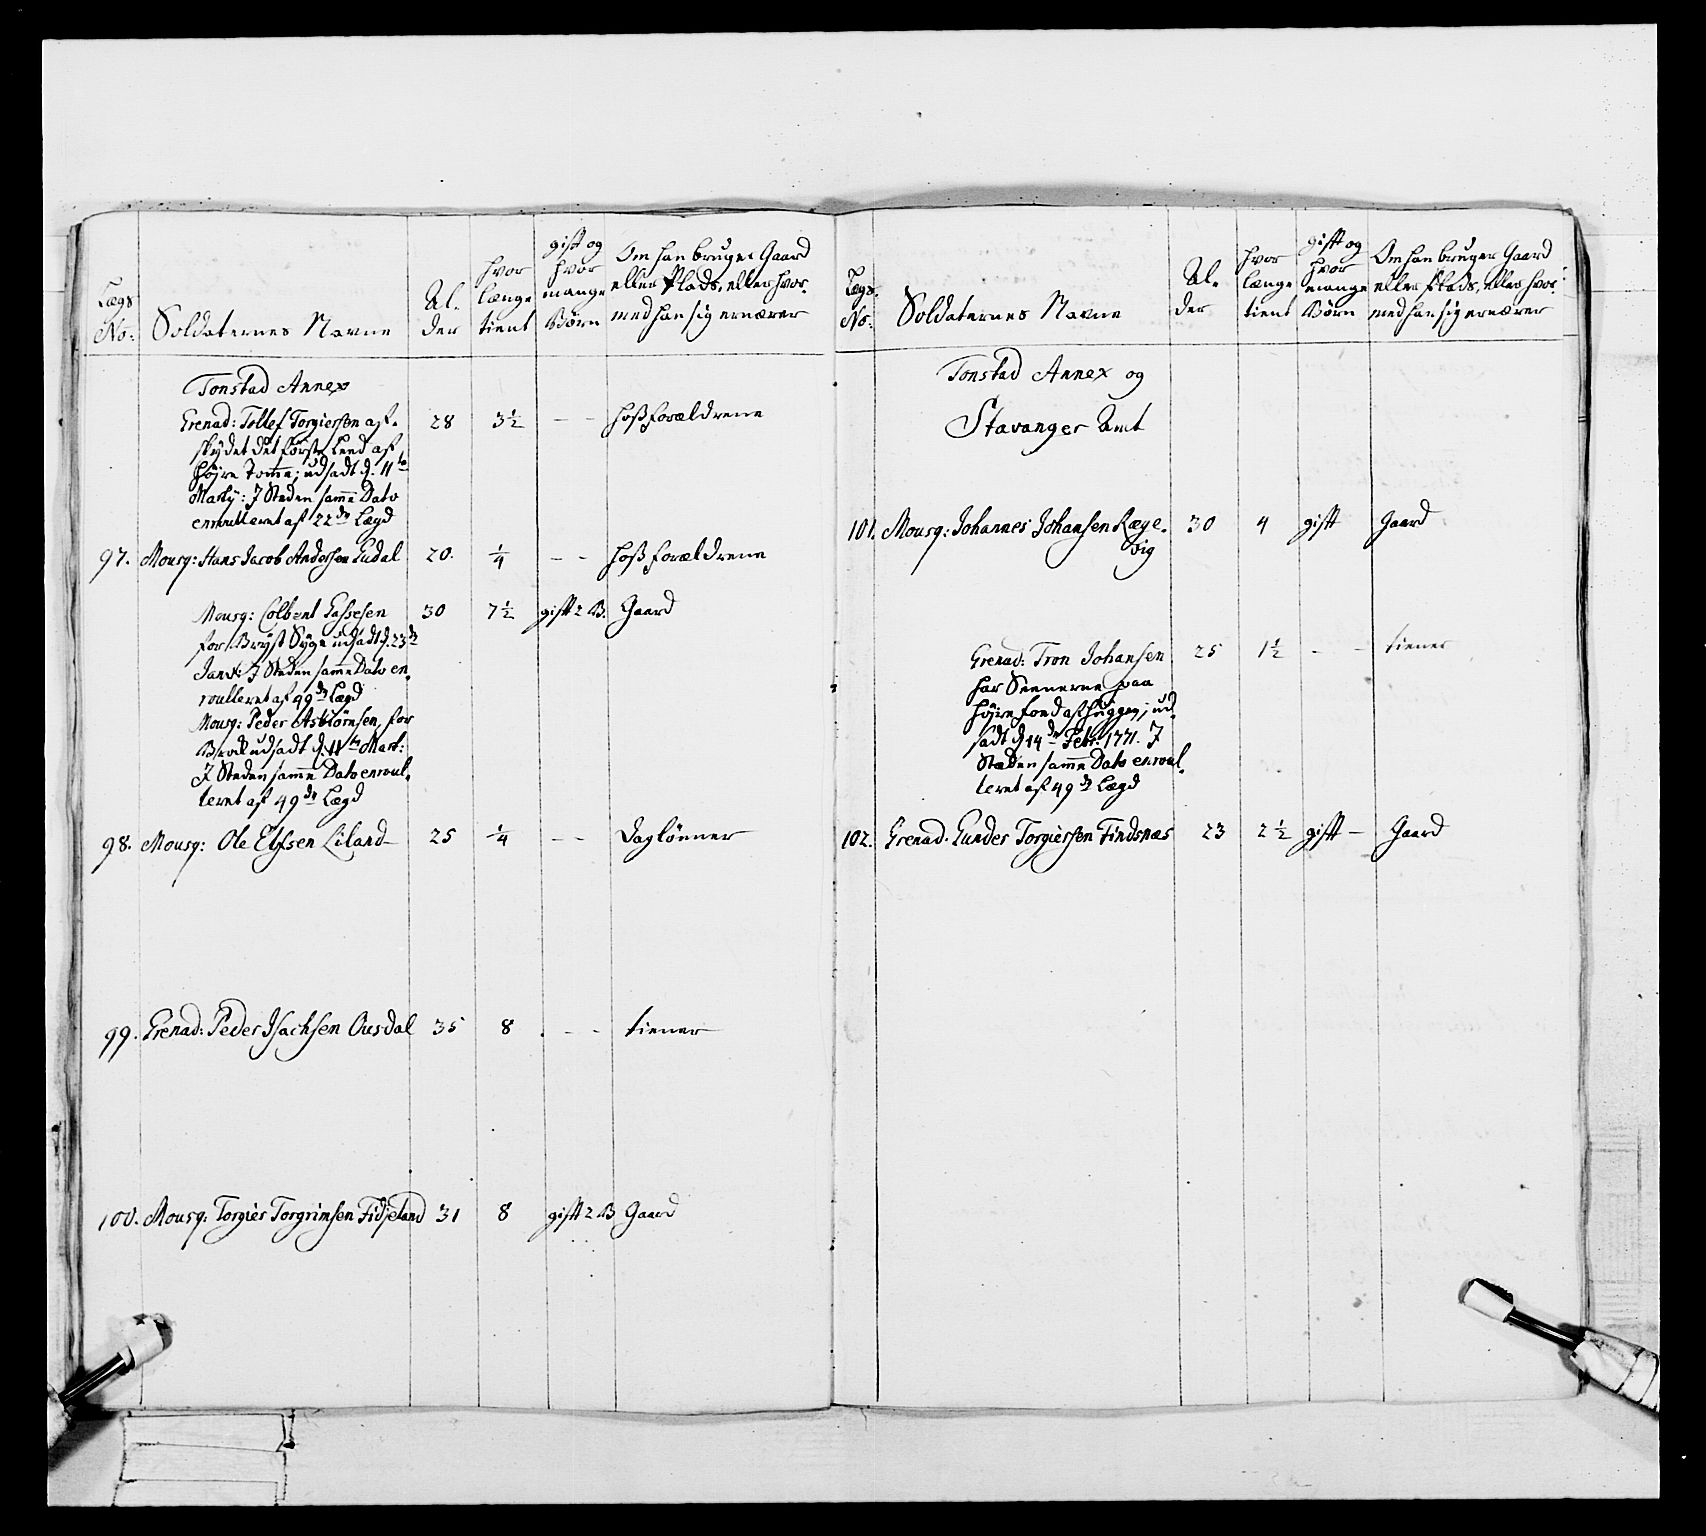 Lægs No: Soldaternes Navne Al- der hvor længe tient gift og hvor mange Børn Om han bruger Gaard eller Plads, eller hvor- med han sig ernærer
Tonstad Annex
Grenad: Tollef Torgiersen af- 28 3½ - - hoß forældrene
skydet det første Leed af
højre Tomme; udsadt d. 11te
Marty: I Steden samme Dato
enroulleret af 22de Lægd
97. Mousq: Hans Jacob Andersen Gudal 20. ¼ - - hoß forældrene
Mousq: Colbent Gassesen 30 7½ gift 2 B. Gaard
for Bryst Syge udsadt d. 23de
Janv: I Steden samme Dato en-
roulleret af 99de Lægd
Mousq: Peder Asbiørnsen, for
Brok udsadt d. 11te Mart:
I Steden samme Dato enroul-
leret af 49de Lægd
98. Mousq: Ole Elfsen Liland 25 ¼ - - Daglønner
99. Grenad: Peder Isachsen Ousdal 35 8 - - tiener
100. Mousq: Torgier Torgrimsen Fidjeland 31 8 gift 2 B Gaard
Lægs No: Soldaternes Navne Al- der hvor længe tient gift og hvor mange Børn Om han bruger Gaard eller Plads, eller hvor- med han sig ernærer
Tonstad Annex og
Stavanger Amt
101. Mousq: Johannes Johansen Ræge- 30 4 gift Gaard
vig
Grenad: Tron Johansen 25 1½ - - tiener
har Seenerne paa
højre Haand afhuggen; ud-
sadt d 14de Febr: 1771. I
Stæden samme Dato enroul-
leret af 49de Lægd
102. Grenad. Gunder Torgiersen Findsnæs 23 2½ gift - Gaard